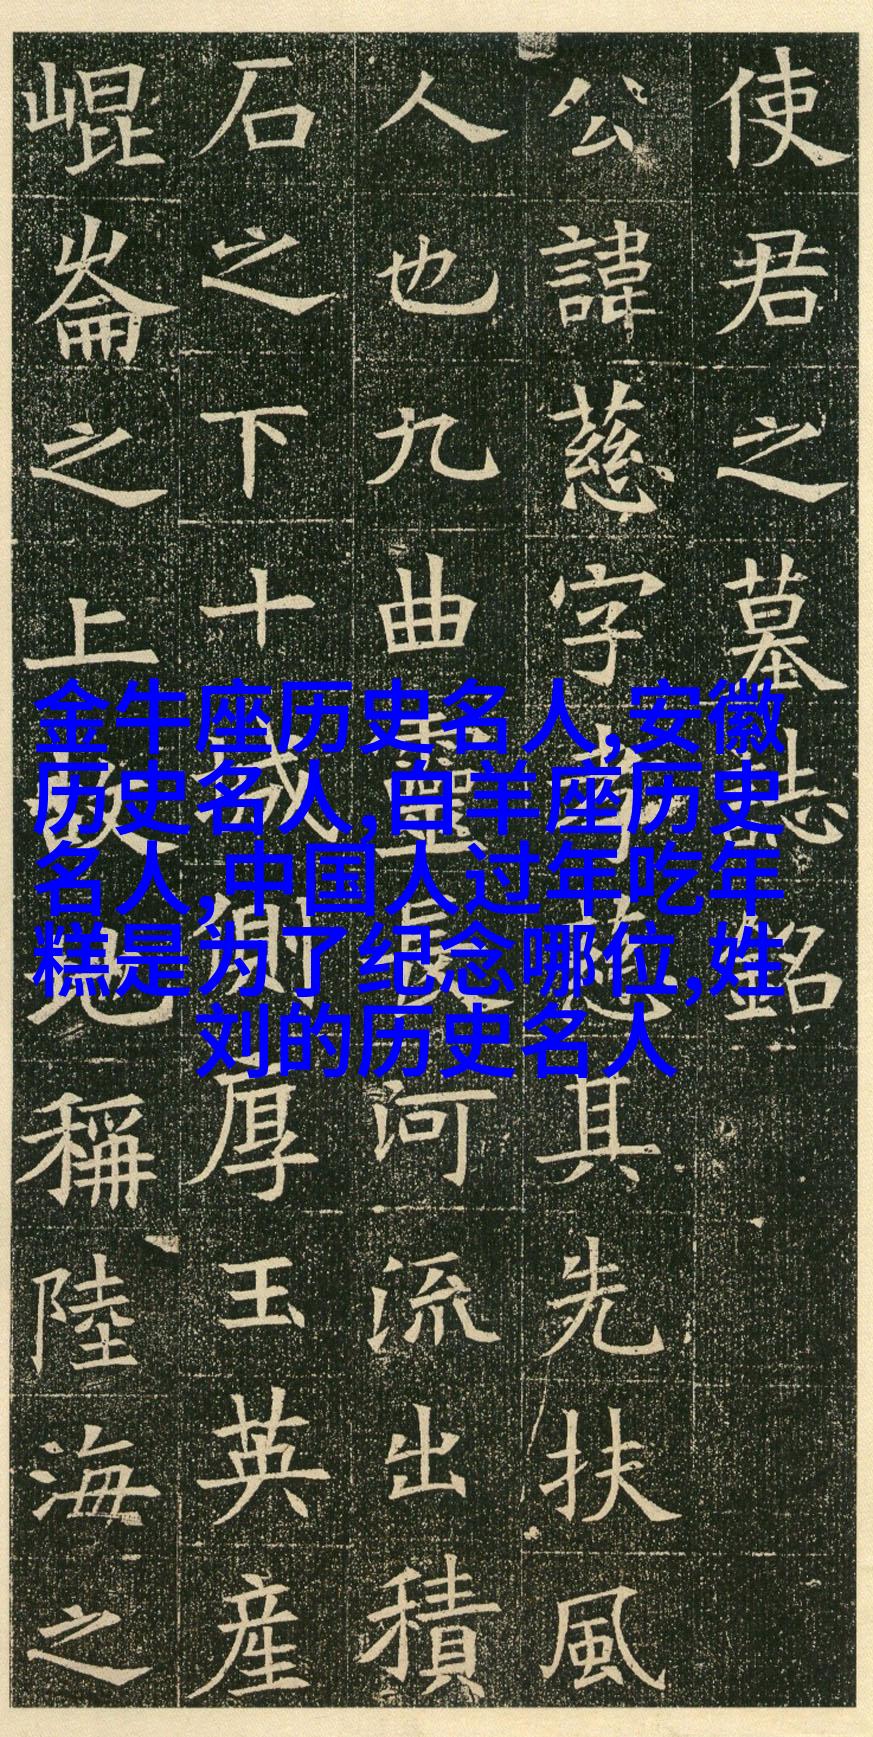 使君之墓誌銘
公諱慈字孝慈其先扶風
人也九曲靈長河流出積
石之下十城側厚玉英産
崐崙之上故地稱陸海之
金牛座历史名人,安徽
历史名人,白羊座历史
名人,中国人过年吃年
糕是为了纪念哪位,姓
刘的历史名人